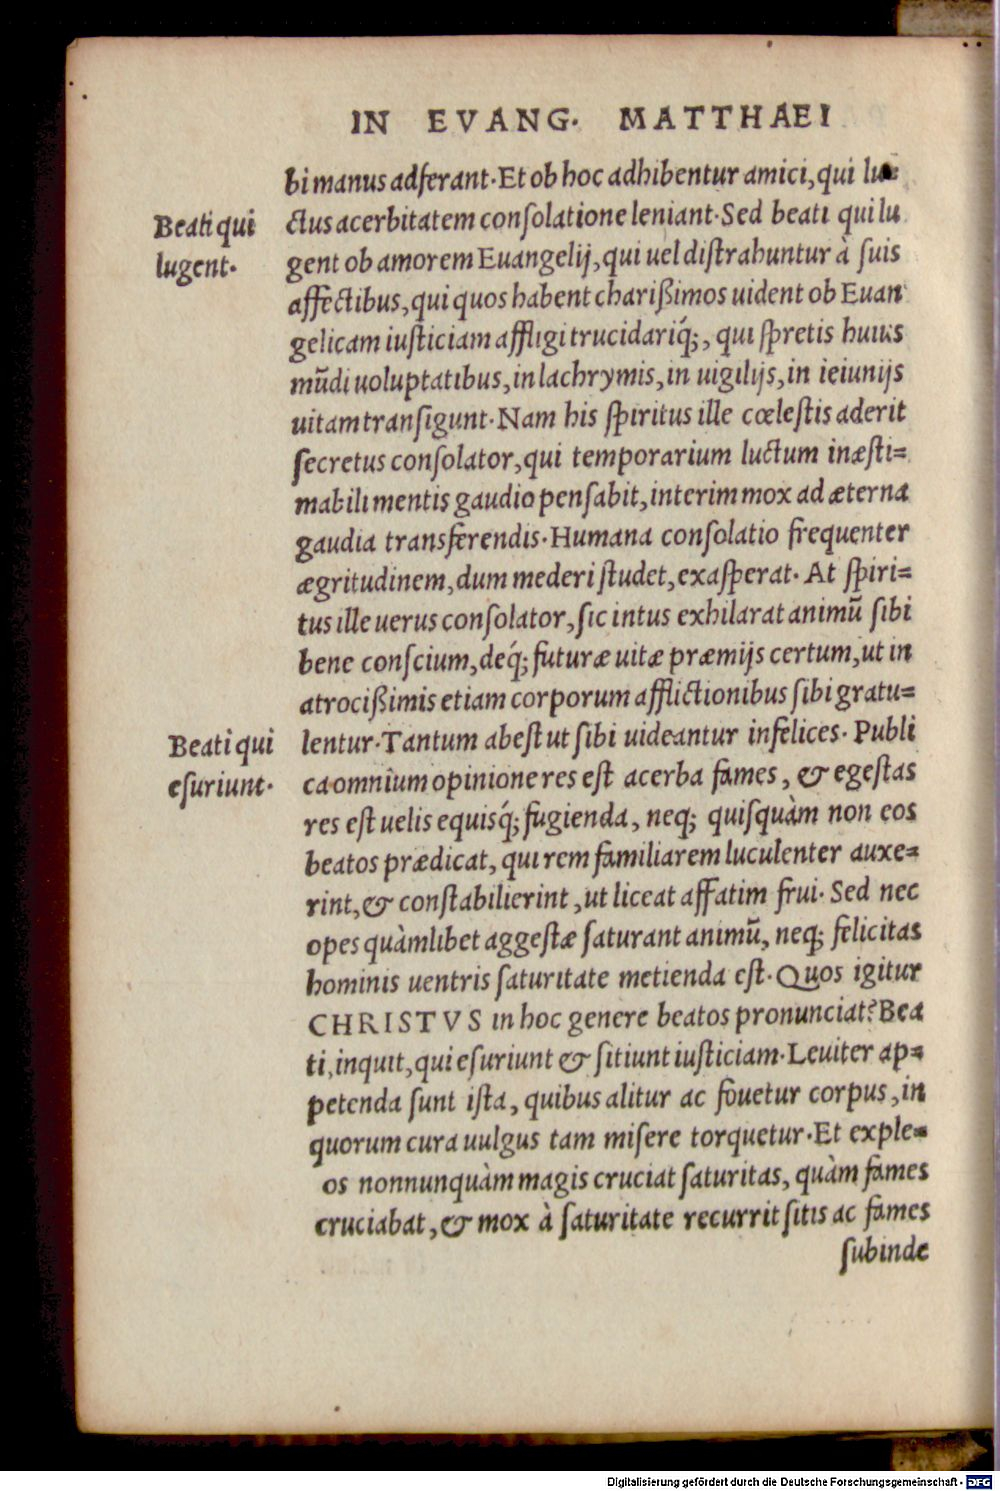 IN EVANG. MATTHAEI
bi manus adferant. Et ob hoc adhibentur amici, qui lu=
Beati qui
lugent.
ctus acerbitatem consolatione leniant. Sed beati qui lu
gent ob amorem Euangelij, qui uel distrahuntur à suis
affectibus, qui quos habent charißimos uident ob Euan
gelicam iusticiam affligi trucidariq́;, qui spretis huius
mũdi uoluptatibus, in lachrymis, in uigilijs, in ieiunijs
uitam transigunt. Nam his spiritus ille cœlestis aderit
secretus consolator, qui temporarium luctum inæsti=
mabili mentis gaudio pensabit, interim mox ad æterna
gaudia transferendis. Humana consolatio frequenter
ægritudinem, dum mederi studet, exasperat. At spiri=
tus ille uerus consolator, sic intus exhilarat animũ sibi
bene conscium, deq́; futuræ uitæ præmijs certum, ut in
atrocißimis etiam corporum afflictionibus sibi gratu=
Beati qui
esuriunt.
lentur. Tantum abest ut sibi uideantur infelices. Publi
ca omnium opinione res est acerba fames, & egestas
res est uelis equisq́; fugienda, neq; quisquàm non eos
beatos prædicat, qui rem familiarem luculenter auxe=
rint, & constabilierint, ut liceat affatim frui. Sed nec
opes quàmlibet aggestæ saturant animũ, neq; felicitas
hominis uentris saturitate metienda est. Quos igitur
CHRISTVS in hoc genere beatos pronunciat? Bea
ti, inquit, qui esuriunt & sitiunt iusticiam. Leuiter ap=
petenda sunt ista, quibus alitur ac fouetur corpus, in
quorum cura uulgus tam misere torquetur. Et exple=
os nonnunquàm magis cruciat saturitas, quàm fames
cruciabat, & mox à saturitate recurrit sitis ac fames
subinde
Digitalisierung gefördert durch die Deutsche Forschungsgemeinschaft - DFG